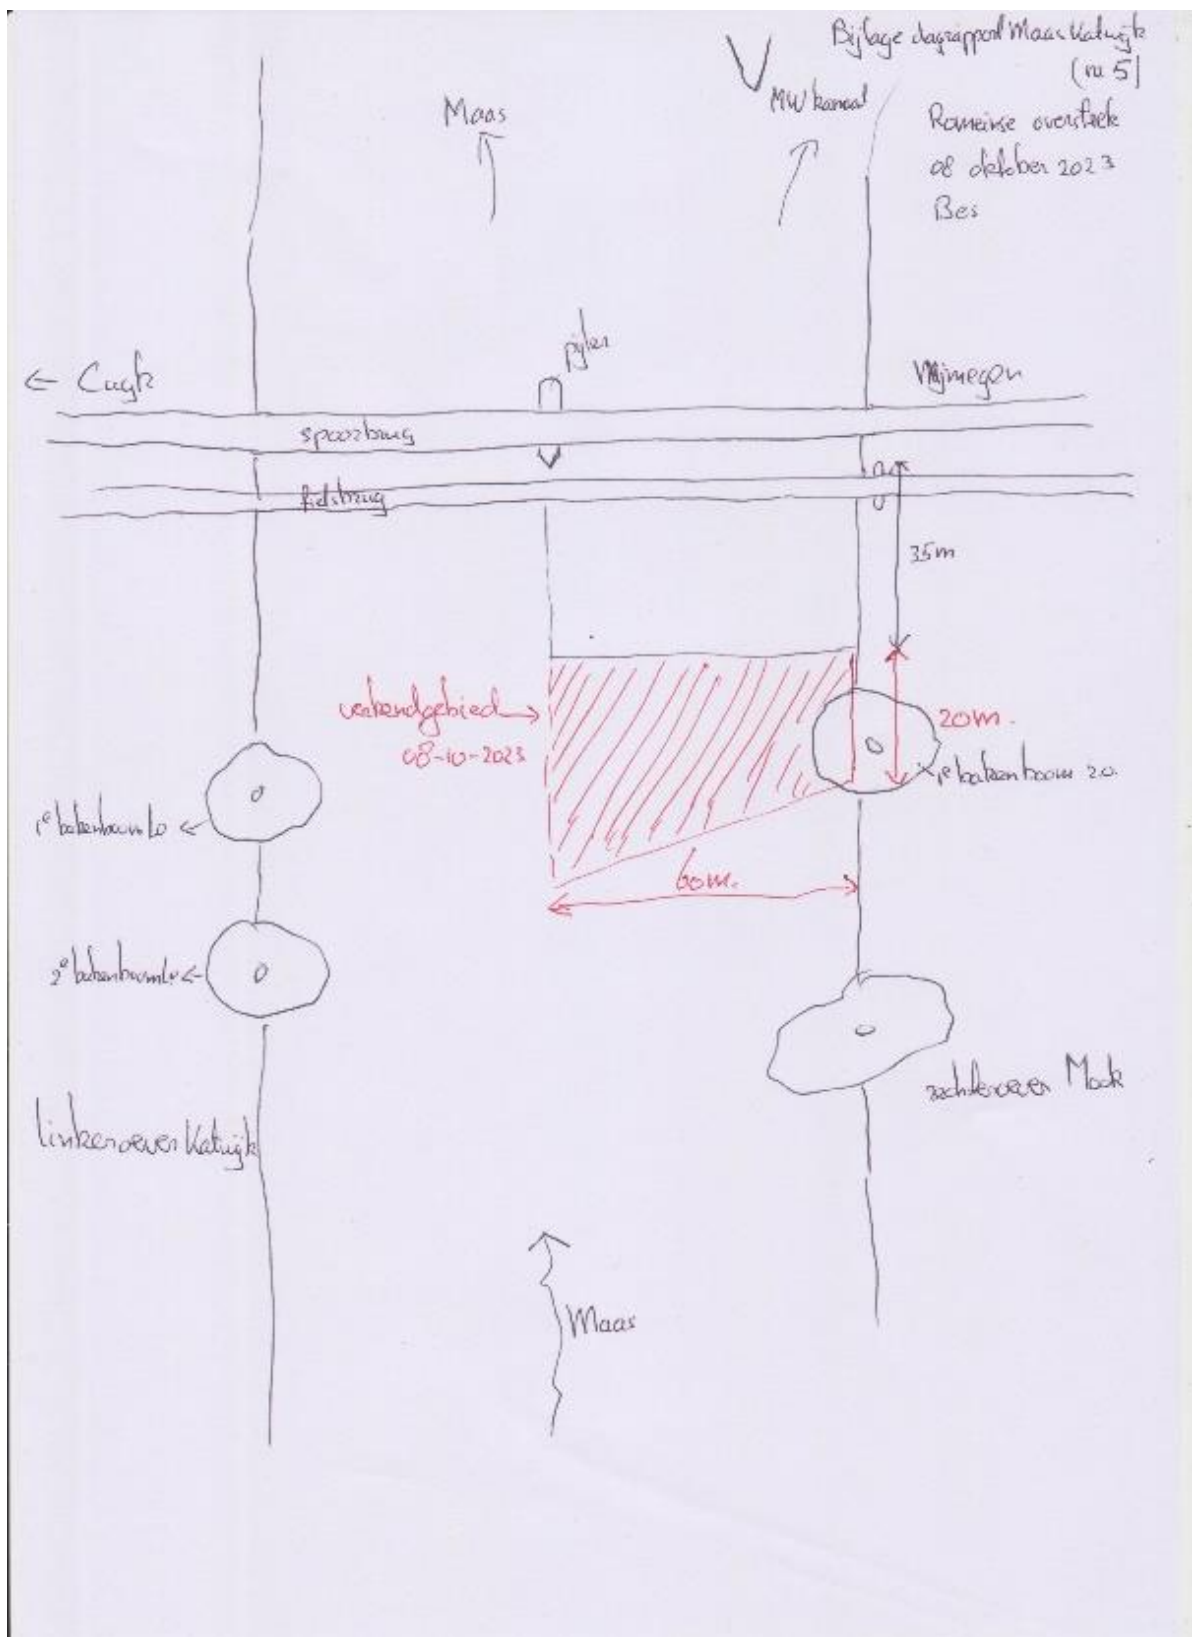 Bijlage dagrapport Maas Katwijk
(nr 5)
Romeinse oversteek
08 oktober 2023
Bes
Maas
MW kanaal
pijler
← Cuyk
Nijmegen
spoorbrug
fietsbrug
35m
verkendgebied
08-10-2023
20m.
1e bakenboom r.o.
1e bakenboom l.o
60m.
2e bakenboom l.o
rechteroever Mook
linkeroever Katwijk
Maas